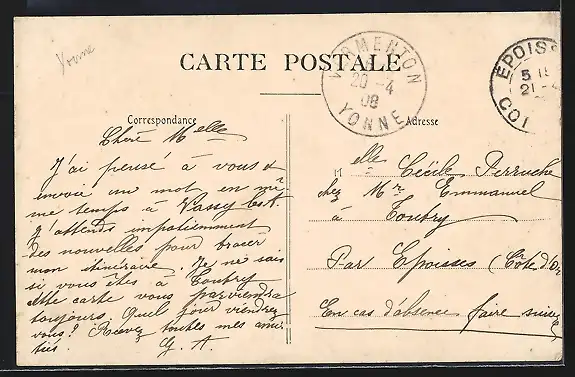 Yonne
CARTE POSTALE
VERMENTON
20 -4
08
YONNE
EPOISS
5 15
21 -4
COT
Correspondance
Adresse
Chère Melle
J'ai pensé à vous et
envoie un mot en mê-
me temps à Vassy et
j'attends impatiemment
des nouvelles pour tracer
mon itinéraire. Je ne sais
si vous êtes à Toutry
cette carte vous parviendra
toujours. Quel jour viendrez
vous? Recevez toutes mes ami-
tiés. G. A.
Melle Cécile Perruche
chez Mr Emmanuel
à Toutry
Par Epoisses (Côte d'Or
En cas d'absence faire suivre